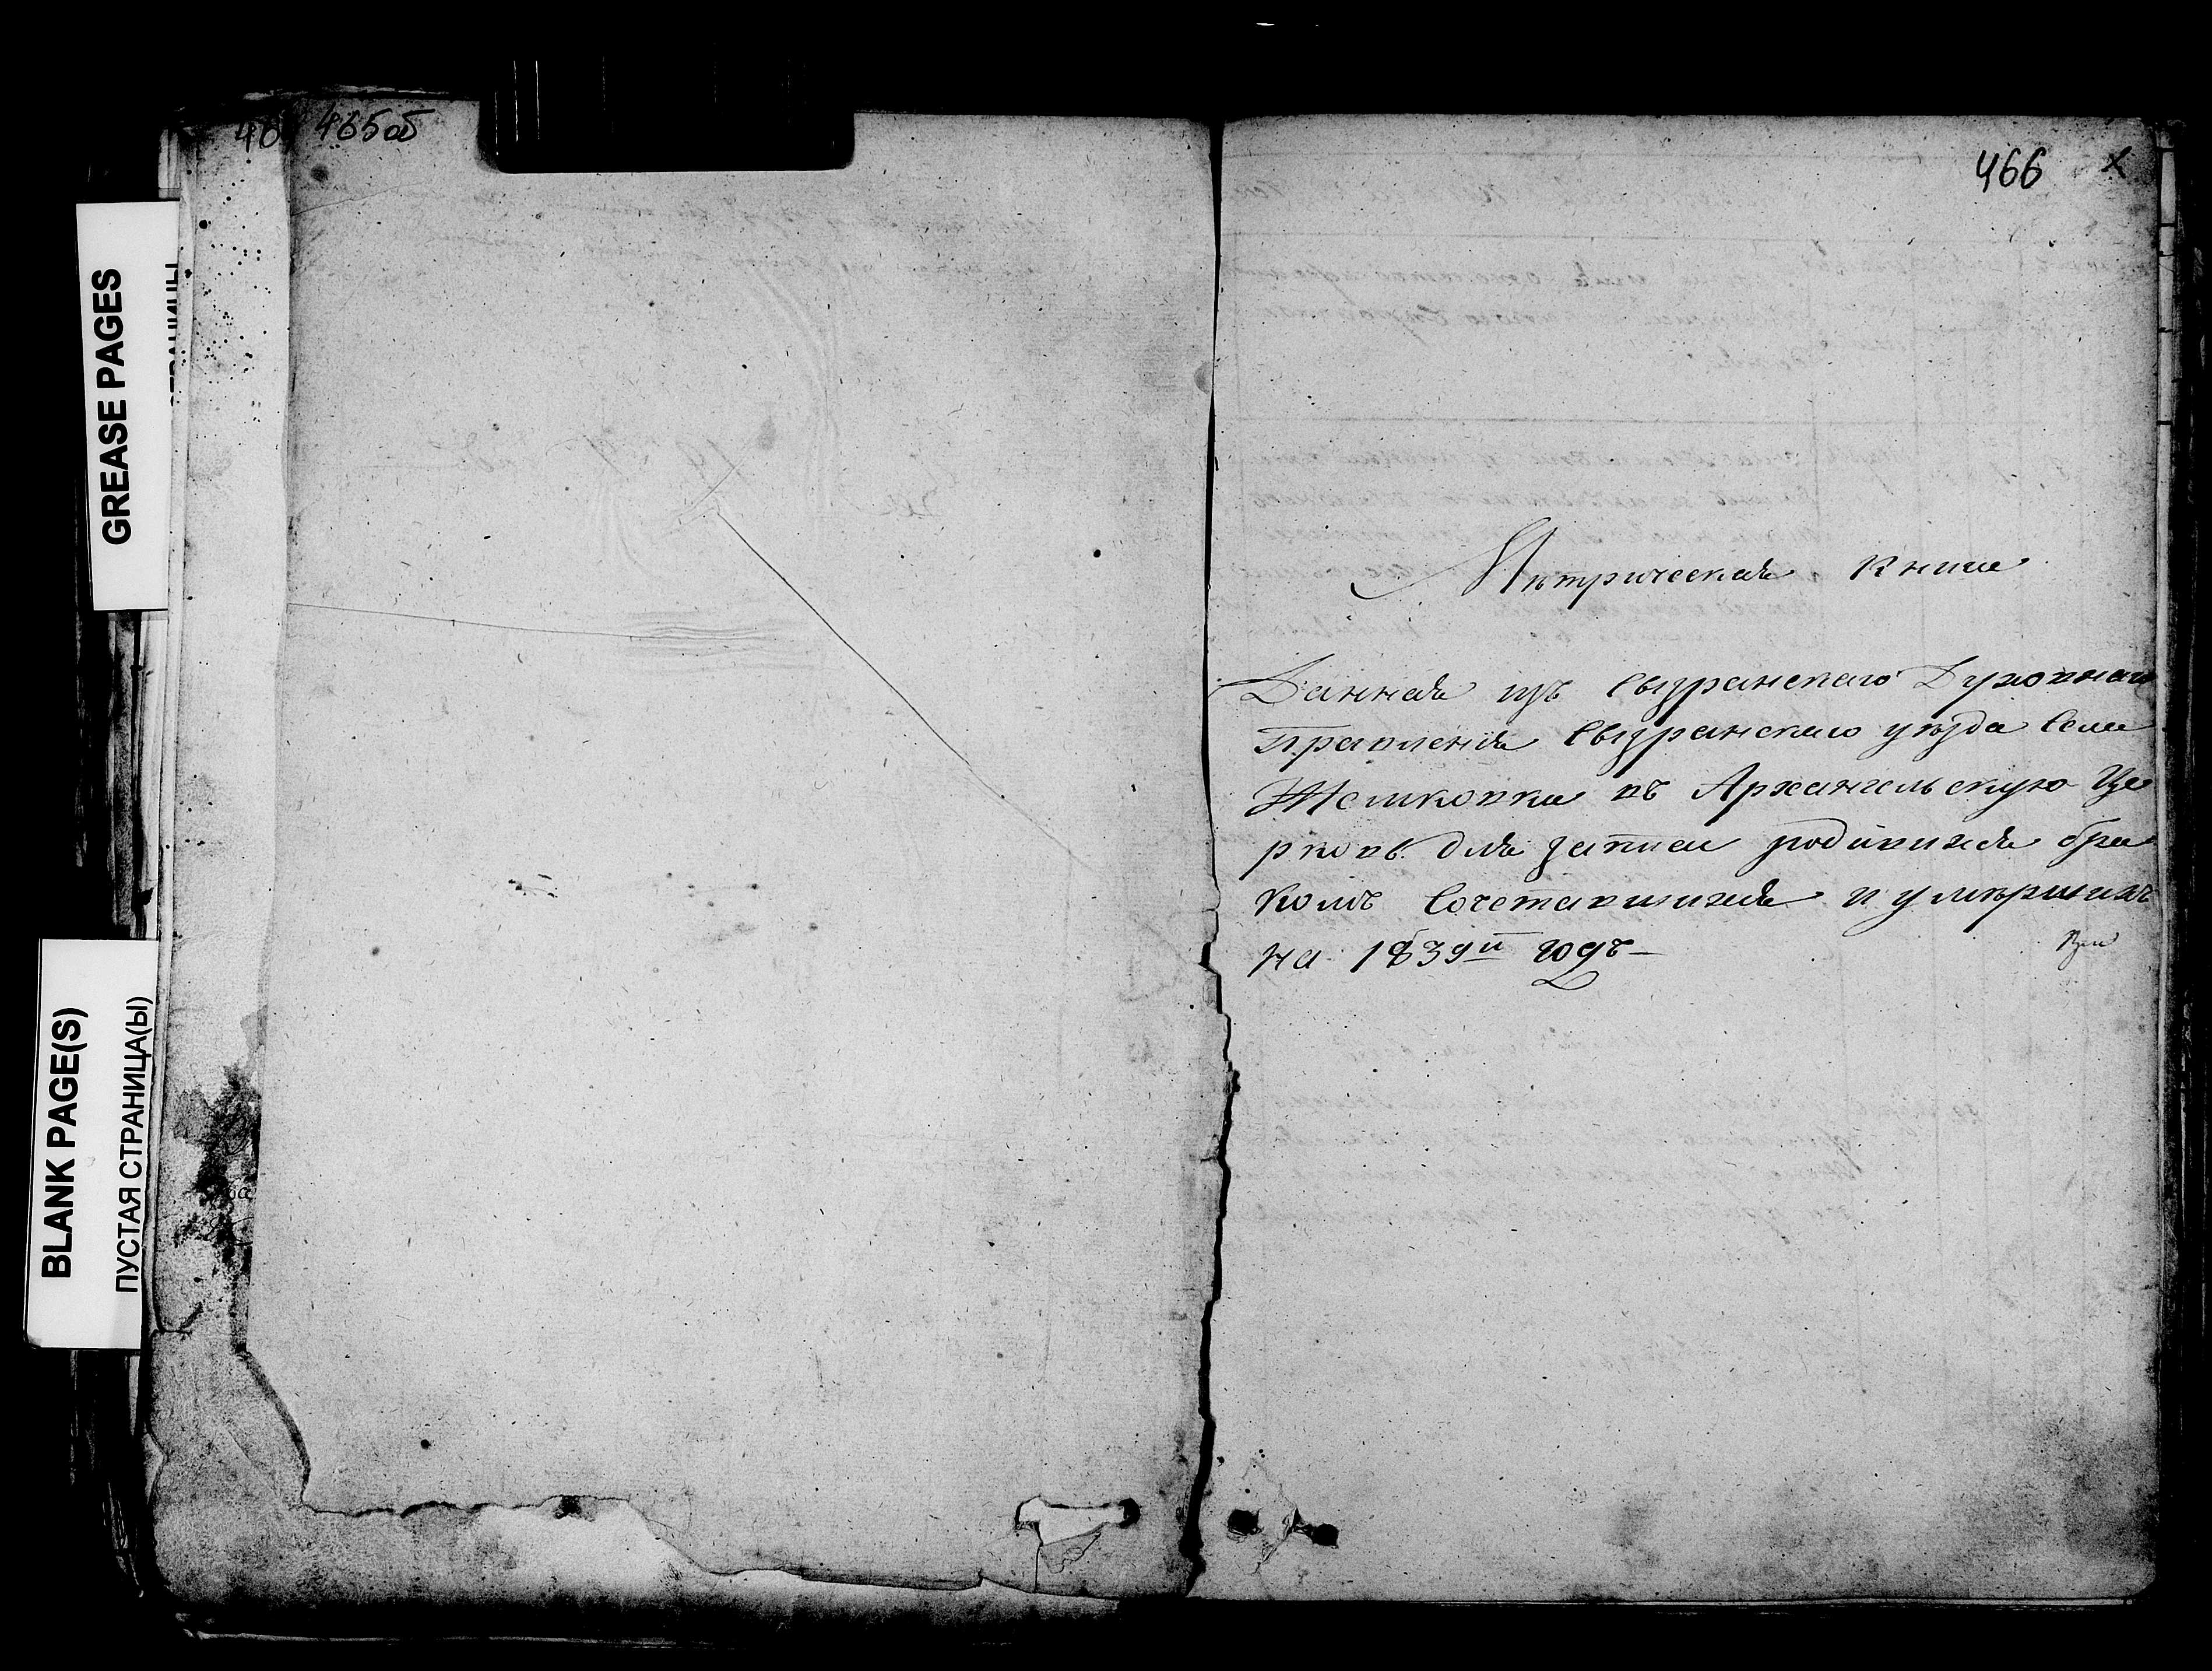 465об
466 х
GREASE PAGES
BLANK PAGE(S)
ПУСТАЯ СТРАНИЦА(Ы)
Мѣтрическая книга
Данная изъ Сызранскаго Духовнаго
Правления Сызранскаго уѣзда Села
Жемковки въ Архангельскую Це
рковь для записи родившихся бра
комъ Сочетавшихся и умѣршихъ
на 1839й годъ